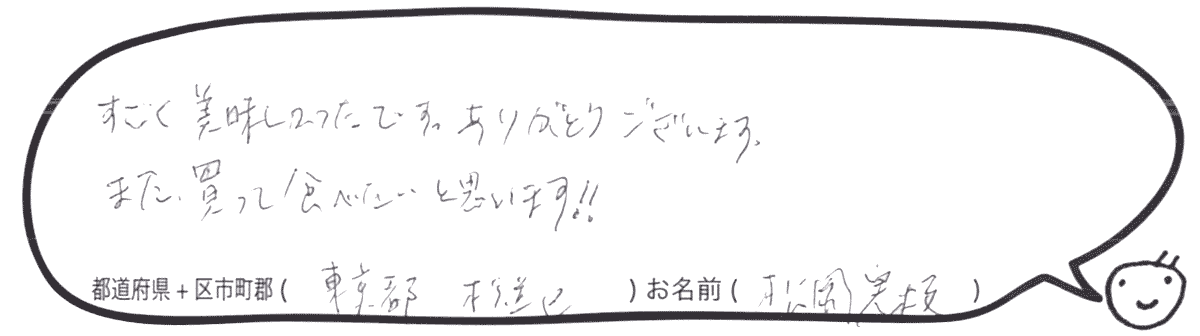 すごく美味しかったです。ありがとうございます。
また、買って食べたいと思います!!
都道府県+区市町郡( 東京都 杉並区 )お名前( 松岡実頼 )